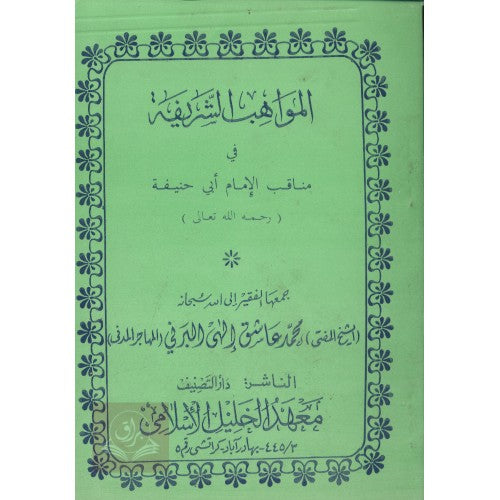 المواهب الشريفة
في
مناقب الإمام أبي حنيفة
(رحمه الله تعالى)
جمعها الفقير إلى الله سبحانه
(الشيخ المفتي) محمد عاشق إلهي البرني (المهاجر المدني)
الناشر: دار التصنيف
معهد الخليل الإسلامي
٤٤٥/٣- بهادر آباد - كراتشي رقم ٥